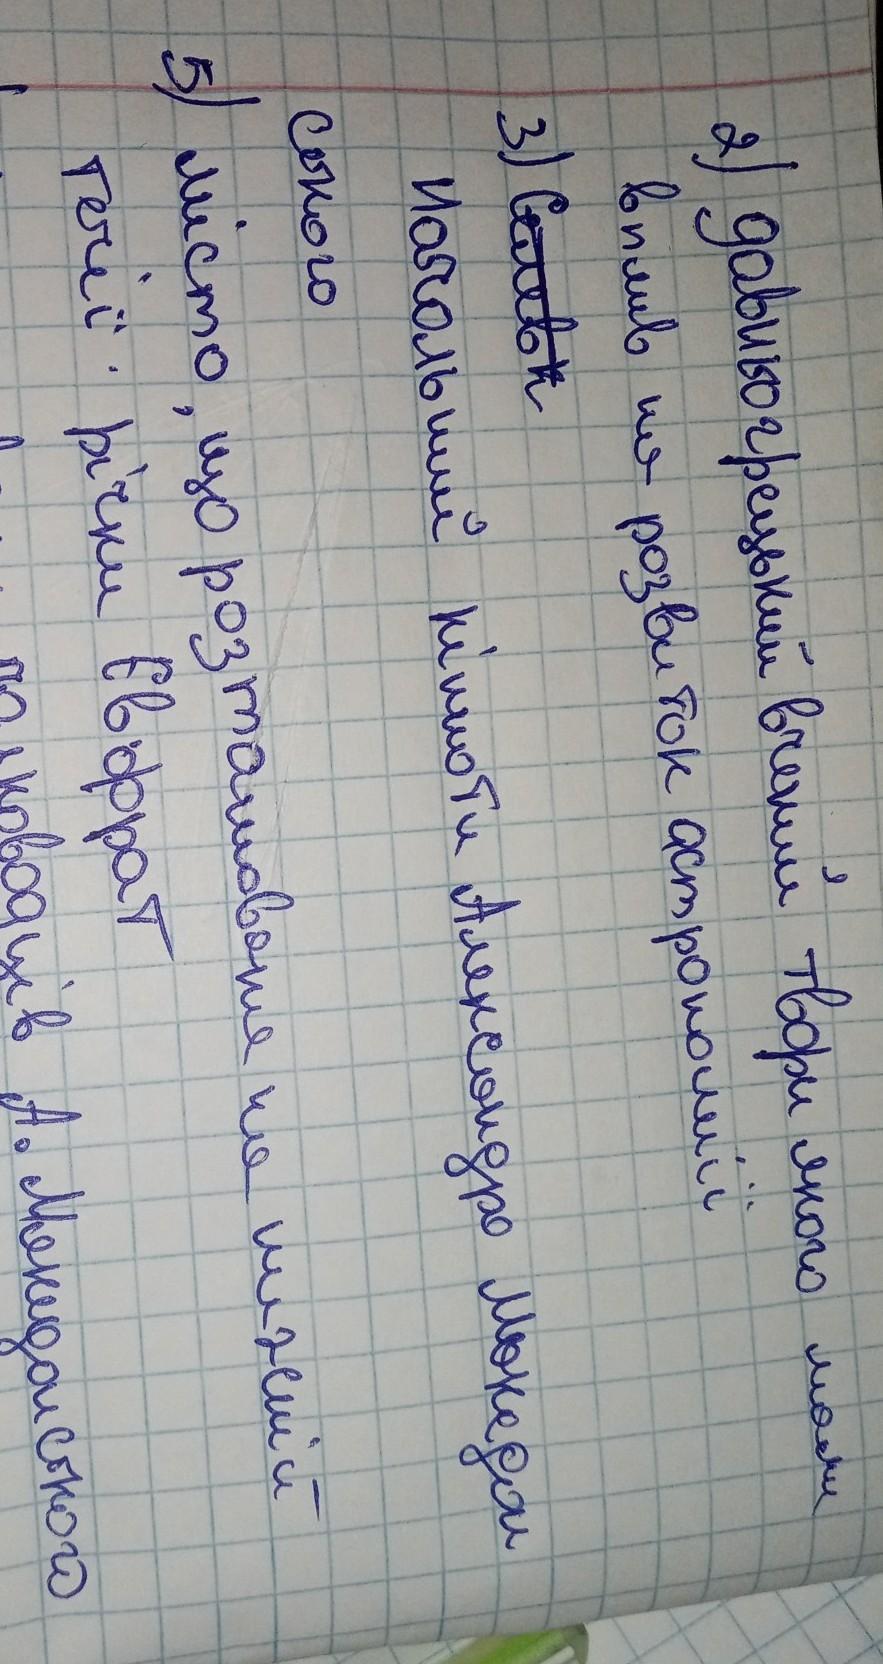 2) давньогрецький вчений твори якого мали
вплив на розвиток астрономії
3) Селевк
Начальник кінноти Александра Македон
ського
5) місто, що розташоване на нижній
течії річки Євфрат
полководців А. Македонського